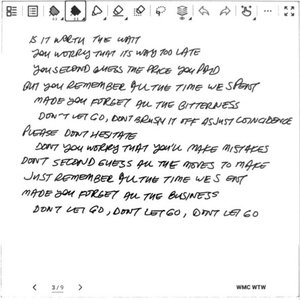 IS IT WORTH THE WAIT
YOU WORRY THAT ITS WAY TOO LATE
YOU SECOND GUESS THE PRICE YOU PAID
BUT YOU REMEMBER ALL THE TIME WE SPENT
MADE YOU FORGET ALL THE BITTERNESS
DON'T LET GO, DON'T BRUSH IT OFF AS JUST COINCIDENCE
PLEASE DON'T HESITATE
DON'T YOU WORRY THAT YOU'LL MAKE MISTAKES
DON'T SECOND GUESS ALL THE MOVES TO MAKE
JUST REMEMBER ALL THE TIME WE S ENT
MADE YOU FORGET ALL THE BUSINESS
DON'T LET GO, DON'T LET GO, DON'T LET GO
3/9
WMC WTW